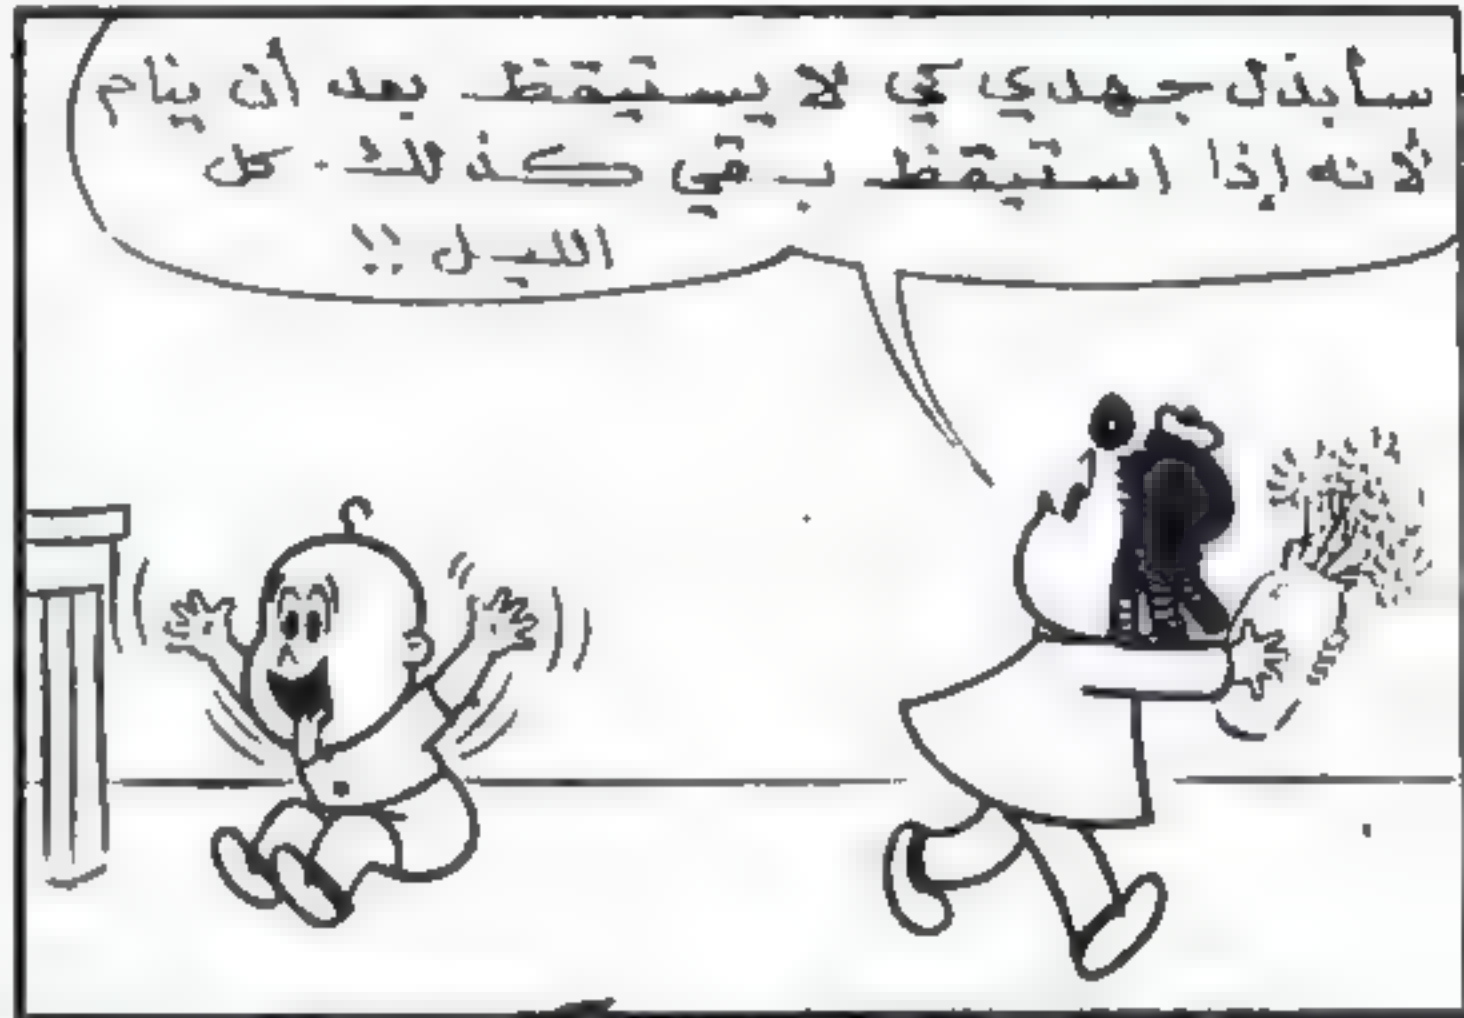 سأبذل جهدي كي لا يستيقظ بعد أن ينام
لأنه إذا استيقظ بقي كذلك كل
الليل !!